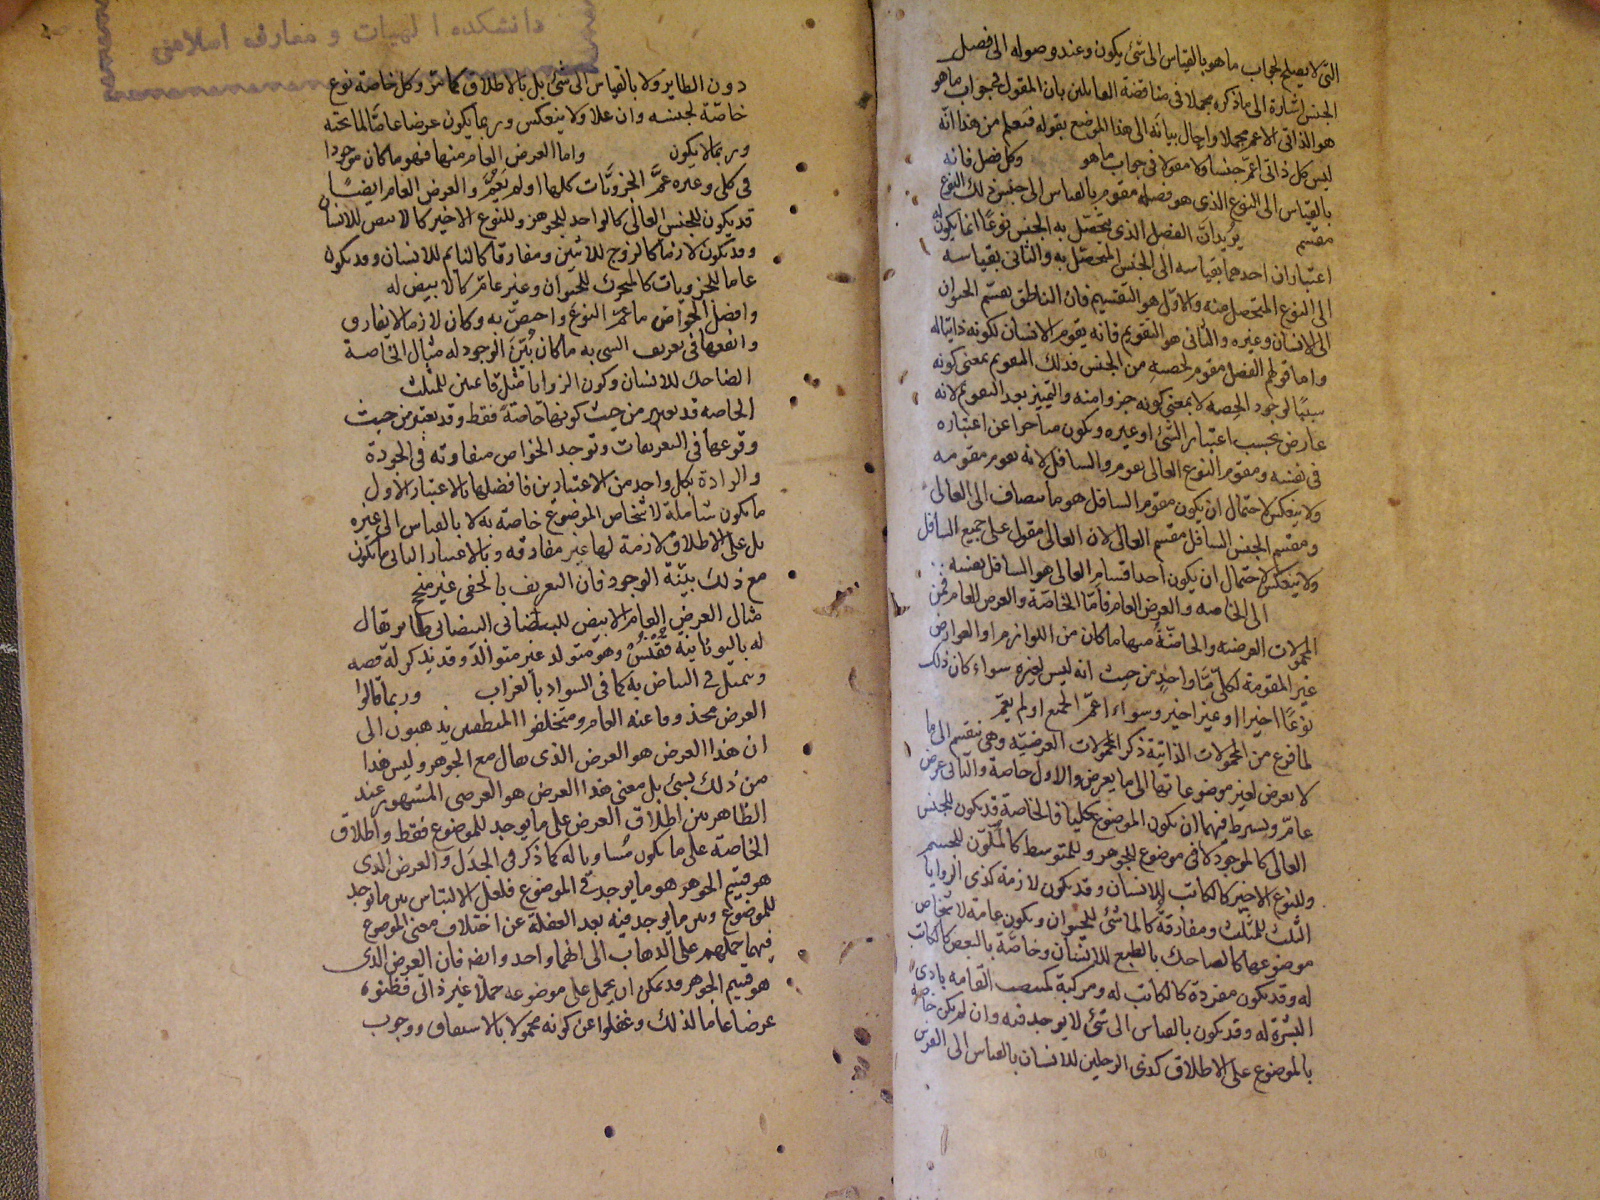 دانشكده الهيات و معارف اسلامى
التى لا يصلح لجواب ما هو بالقياس الى شئ يكون وعند وصوله الى فصل
الجنس اشارة الى ما ذكره مجملا فى مناقضة القايلين بان المقول فى جواب ما هو
هو الذاتى الاعم مجملا واحال بيانه الى هذا الموضع بقوله فتعلم من هذا انه
ليس كل ذاتى اعم جنسا ولا مقولا فى جواب ما هو وكل فصل فانه
بالقياس الى النوع الذى هو فصله مقوم بالقياس الى جنس ذلك النوع
مقسم يريد ان الفصل الذى يتحصل به الجنس نوعا انما يكون له
اعتباران احدهما بقياسه الى الجنس المتحصل به والثانى بقياسه
الى النوع المتحصل منه والاول هو التقسيم فان الناطق يقسم الحيوان
الى الانسان وغيره والثانى هو التقويم فانه يقوم الانسان لكونه ذاتيا له
واما قولهم الفصل مقوم لحصه من الجنس فذلك التقويم بمعنى كونه
سببا لوجود الحصه لا بمعنى كونه جزوا منه والتمييز بعد التقويم لانه
عارض بحسب اعتبار الشئ او غيره ويكون متاخرا عن اعتباره
فى نفسه ومقوم النوع العالى يقوم والسافل لانه يقوم مقومه
ولا ينعكس لاحتمال ان يكون مقوم السافل هو ما ينضاف الى العالى
ومقسم الجنس السافل مقسم العالى لان العالى مقول على جميع السافل
ولا ينعكس لاحتمال ان يكون احد اقسام العالى هو السافل بعينه
الى الخاصه والعرض العام فاما الخاصة والعرض العام فمن
المحمولات العرضيه والخاصة منها ما كان من اللوازم او العوارض
غير المقومة لكلى ما واحد من حيث انه ليس لغيره سواء كان ذلك
نوعا اخيرا او غير اخير وسواء عم الجميع او لم يعم
لما فرغ من المحمولات الذاتية ذكر المحمولات العرضية وهى تنقسم الى ما
لا يعرض لغير موضوعاتها الى ما يعرض والاول خاصة والثانى عرض
عام ويشترط فيهما ان يكون الموضوع كليا فالخاصة قد يكون للجنس
العالى كالموجود لا فى موضوع للجوهر وللمتوسط كالملون للجسم
وللنوع الاخير كالكاتب للانسان وقد يكون لازمة كذى الزوايا
الثلث للمثلث ومفارقة كالماشى للحيوان ويكون عامة لاشخاص
موضوعها كالضاحك بالطبع للانسان وخاصة بالبعض كالكاتب
له وقد يكون مفردة كالكاتب له ومركبة كمنتصب القامه بادى
البشرة له وقد يكون بالقياس الى شئ لا يوجد فيه وان لم يكن خاصة
بالموضوع على الاطلاق كذى الرجلين للانسان بالقياس الى الفرس
دون الطاير ولا بالقياس الى شئ بل بالاطلاق كما مر وكل خاصة نوع
خاصة لجنسه وان علا ولا ينعكس وربما يكون عرضا عاما لما تحته
وربما لا يكون واما العرض العام منها فهو ما كان موجودا
فى كلى وغيره عم الجزويات كلها او لم يعم والعرض العام ايضا
قد يكون للجنس العالى كالواحد للجوهر وللنوع الاخير كالابيض للانسان
وقد يكون لازما كالزوج للاثنين ومفارقا كالنائم للانسان وقد يكون
عاما للجزويات كالمتحرك للحيوان وغير عام كالابيض له
وافضل الخواص ما عم النوع واختص به وكان لازما لا يفارق
وانفعها فى تعريف الشى به ما كان بين الوجود له مثال الخاصة
الضاحك للانسان وكون الزوايا مثل قائمتين للمثلث
الخاصه قد تعتبر من حيث كونها خاصة فقط وقد يعتبر من حيث
وقوعها فى التعريفات وتوجد الخواص متفاوته فى الجودة
والرداءة بكل واحد من الاعتبارين فافضلها بالاعتبار الاول
ما يكون شاملة لاشخاص الموضوع خاصة به لا بالقياس الى غيره
بل على الاطلاق لازمة لها غير مفارقه وبالاعتبار الثانى ما يكون
مع ذلك بينة الوجود فان التعريف بالخفى غير منجح
مثال العرض العام الابيض للبيضانى البيضانى طاير يقال
له باليونانية ققنس وهو متولد غير متوالد وقد يذكر له قصه
ويتمثل فى البياض به كما فى السواد بالغراب وربما قالوا
العرض محذوفا عنه العام ومتخلفوا المنطقيين يذهبون الى
ان هذا العرض هو العرض الذى يقال مع الجوهر وليس هذا
من ذلك بشئ بل معنى هذا العرض هو العرضى المشهور عند
الظاهريين اطلاق العرض على ما يوجد للموضوع فقط واطلاق
الخاصة على ما يكون مساويا له كما ذكر فى الجدل والعرض الذى
هو قسيم الجوهر هو ما يوجد فى الموضوع فلعل الالتباس بين ما يوجد
للموضوع وبين ما يوجد فيه بعد الغفلة عن اختلاف معنى الموضوع
فيهما حملهم على الذهاب الى انهما واحد وايضه فان العرض الذى
هو قسيم الجوهر قد يمكن ان يحمل على موضوعه حملا غير ذاتى فظنوه
عرضا عاما لذلك وغفلوا عن كونه محمولا بالاشتقاق ووجوب